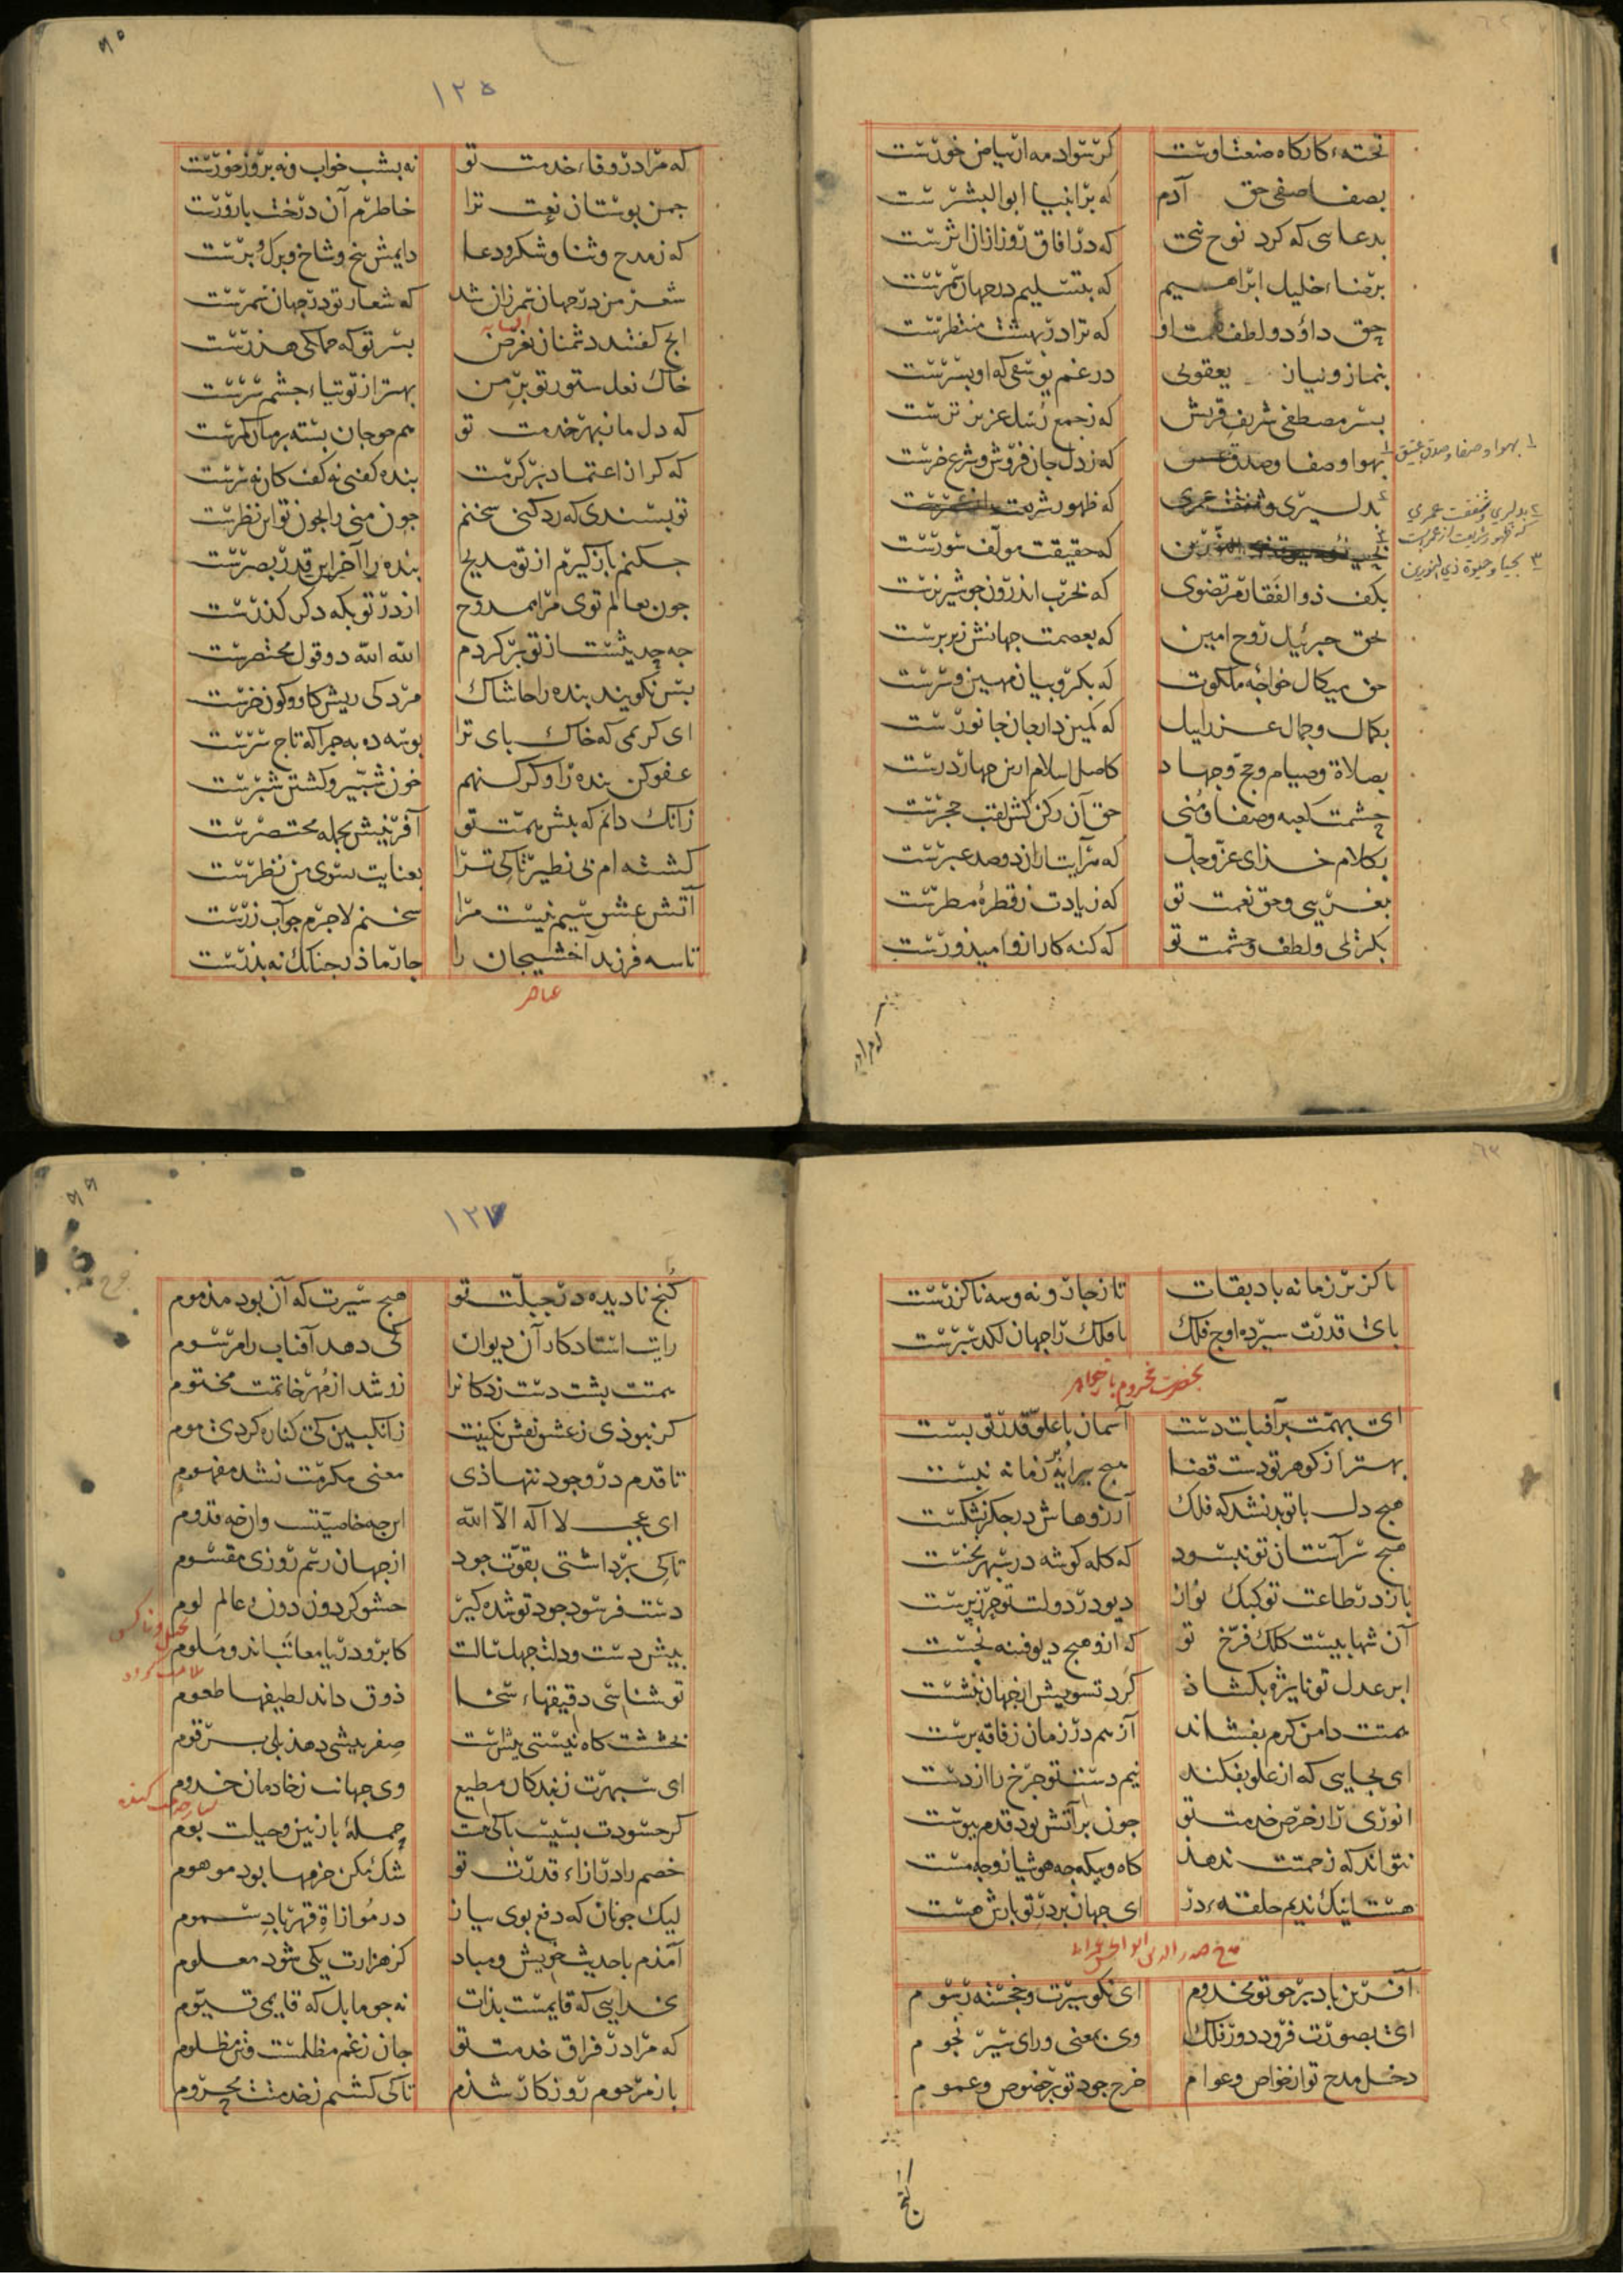 تخته کارکاه صنعت اوست کر سواد مه از بیاض خورست
بصفا صفی حق آدم که برانبیا ابوالبشرست
بدعایی که کرد نوح نجی که در آفاق روز ازان اثرست
برضاء خلیل ابراهیم که بتسلیم در جهان سمرست
بحق داؤد و لطف نعمت او که ترا در بهشت منتظرست
بنماز و نیاز یعقوبی در غم یوسفی که او پسرست
بسر مصطفی شریف قریش که ز جمع رسل عزیزترست
بهوا و صفا و صدق که ز دل جان فروش و شرع خرست
۱ بهوا و صفا و صدق عتیق
بدلیری و شفقت عمری که ظهور شریعت از عمرست
۲ بدلیری و شفقت عمری
که ظهور شریعت از عمرست
که حقیقت مؤلف سورست
۳ بحیا و حیوة ذی النورین
بکف ذوالفقار مرتضوی که بحرب اندرون چو شیر نرست
بحق جبرئیل روح امین که بعصمت جهانش زیر پرست
حق میکال خواجه ملکوت که بکروبیان مهین و سرست
بکمال و جمال عزرایل که کمین دار جان جانورست
بصلاة و صیام و حج و جهاد کاصل اسلام ازین چهار درست
بحشمت کعبه و صفا و منی حق آن رکن کش لقب حجرست
بکلام خدای عز و جل که هر آیت ازان دو صد عبرست
بغریبی و حق نعمت تو که زیادت ز قطره مطرست
بکریمی و لطف و حشمت تو که کنه کار ازو امیذورست
که مرا
۱۲۵
که مرا در وفاء خدمت تو نه بشب خواب و نه بروز خورست
چمن بوستان نعت ترا خاطرم آن درخت بارورست
که ز مدح و ثنا و شکر و دعا دایمش بیخ و شاخ و برک و برست
شعر من در جهان سمر زان شد که شعار تو در جهان سمرست
انج کفتند دشمنان بغرض بسر تو که جملکی هذرست
خاک نعل ستور تو بر من بهتر از توتیاء چشم سرست
که دل ما بهر خدمت تو هم چو جان بسته بر میان کمرست
که کر از اعتماد بر کرمت بنده کفنی نه کف کان نه سرست
تو پسندی که رد کنی سخنم چون منی را چون تو این نظرست
چکنم باز کیرم از تو مدیح بنده را آخر این قدر بصرست
چون بعالم توی مرا ممدوح از در تو بکه دکر کذرست
چه حدیثست از تو برکردم الله الله دو قول مختصرست
بس نکویند بنده را حاشاک مردکی ریش کاو و کون خرست
ای کریمی که خاک بای ترا بوسه ده بهجرا که تاج سرست
عفو کن بنده را و کر کنهم خون شبیر و کشتن شبرست
زانک دانم که بیش همت تو آفرینش بجمله مختصرست
کشته ام بی نظیر تا کی ترا بعنایت بسوی من نظرست
آتش عشق سیم نیست مرا سخنم لاجرم چو آب زرست
تا سه فرزند آخشیجان را چار ماذر چنانک نه بذرست
عناصر
ناکزیر زمانه باد بقات تا ز چار و نه و سه ناکزرست
بای قدرت سپرده اوج فلک تا فلک را جهان لکد سپرست
بحضرت مخدوم باز خواهد
ای بهمت بر آفتاب دست آسمان با علو قدر تو بست
بهتر از کوهر تو دست قضا هیچ پیرایه بر زمانه نبست
هیچ دل با تو بد نشد که فلک آرزوهاش در جکر نشکست
هیچ سر آستان تو نبسود که کله کوشه در سپهر نخست
باز در طاعت تو کبک نواز دیو در دولت تو حرز پرست
آن شهابیست کلک فرخ تو که ازو هیچ دیو فتنه نجست
ابر عدل تو نایزه بکشاذ کرد تشویش از جهان بنشست
همتت دامن کرم بفشاند آز هم در زمان ز فاقه برست
ای بجایی که از علو بفکند نیم دست تو چرخ را از دست
انوری را ز حرص خدمت تو چون بر آتش بود قدم بیوست
نتواند که زحمتت ندهد کاه و بیکه چه هوشیار و چه مست
هست اینک ندیم حلقه در ای جهان بر در تو بارش هست
مدح صدر الدین ابو الحسن عمرانی
آفرین باد بر چو تو مخدوم ای نکو سیرت و خجسته رسوم
ای بصورت فرود دور فلک وی بمعنی ورای سیر نجوم
دخل مدح تو از خواص و عوام خرج جود تو بر خصوص و عموم
کنج
۱۲۶
کنج نادیده در جبلت تو هیچ سیرت که آن بود مذموم
رایت استاد کار آن دیوان کی دهد آفتاب را مرسوم
همتت بشت دست زد کانرا زو شد از مهر خاتمت مختوم
کر نبوذی ز عشق نقش نکینت ز انکبین کی کناره کردی موم
تا قدم در وجود ننهاذی معنی مکرمت نشد مفهوم
ای عجب لا اله الا الله این چه خاصیتست وان چه قدوم
تا کی برداشتی بقوت جود از جهان رسم روزی مقسوم
دست فرسود جود تو شده کیر حشو کردون دون و عالم لوم
بیش دست و دلت جهل سالت کابر و دریا معاتب اند و ملوم
تو شناسی دقیقهاء سخا ذوق داند لطیفها طعوم
بخششت کاه نیستی بیش است صفر بیشی دهد بلی برقوم
ای سپهرت ز بندکان مطیع وی جهانت ز خادمان خدوم
کر حسودت بسیست باکی نیست جمله بازنین و حیلت بوم
خصم را در ازاء قدرت تو شک مکن حزمها بود موهوم
لیک چونان که دفع بوی بیاز در موازاة قهر باد سموم
آمذم با حدیث خویش و مباد کز هزارت یکی شود معلوم
بخدایی که قایمست بذات نه چو ما بل که قایمی قیوم
که مرا در فراق خدمت تو جان ز غم مظلمست و تن مظلوم
باز مرحوم روزکار شذم تا کی کشتم ز خدمتت محروم